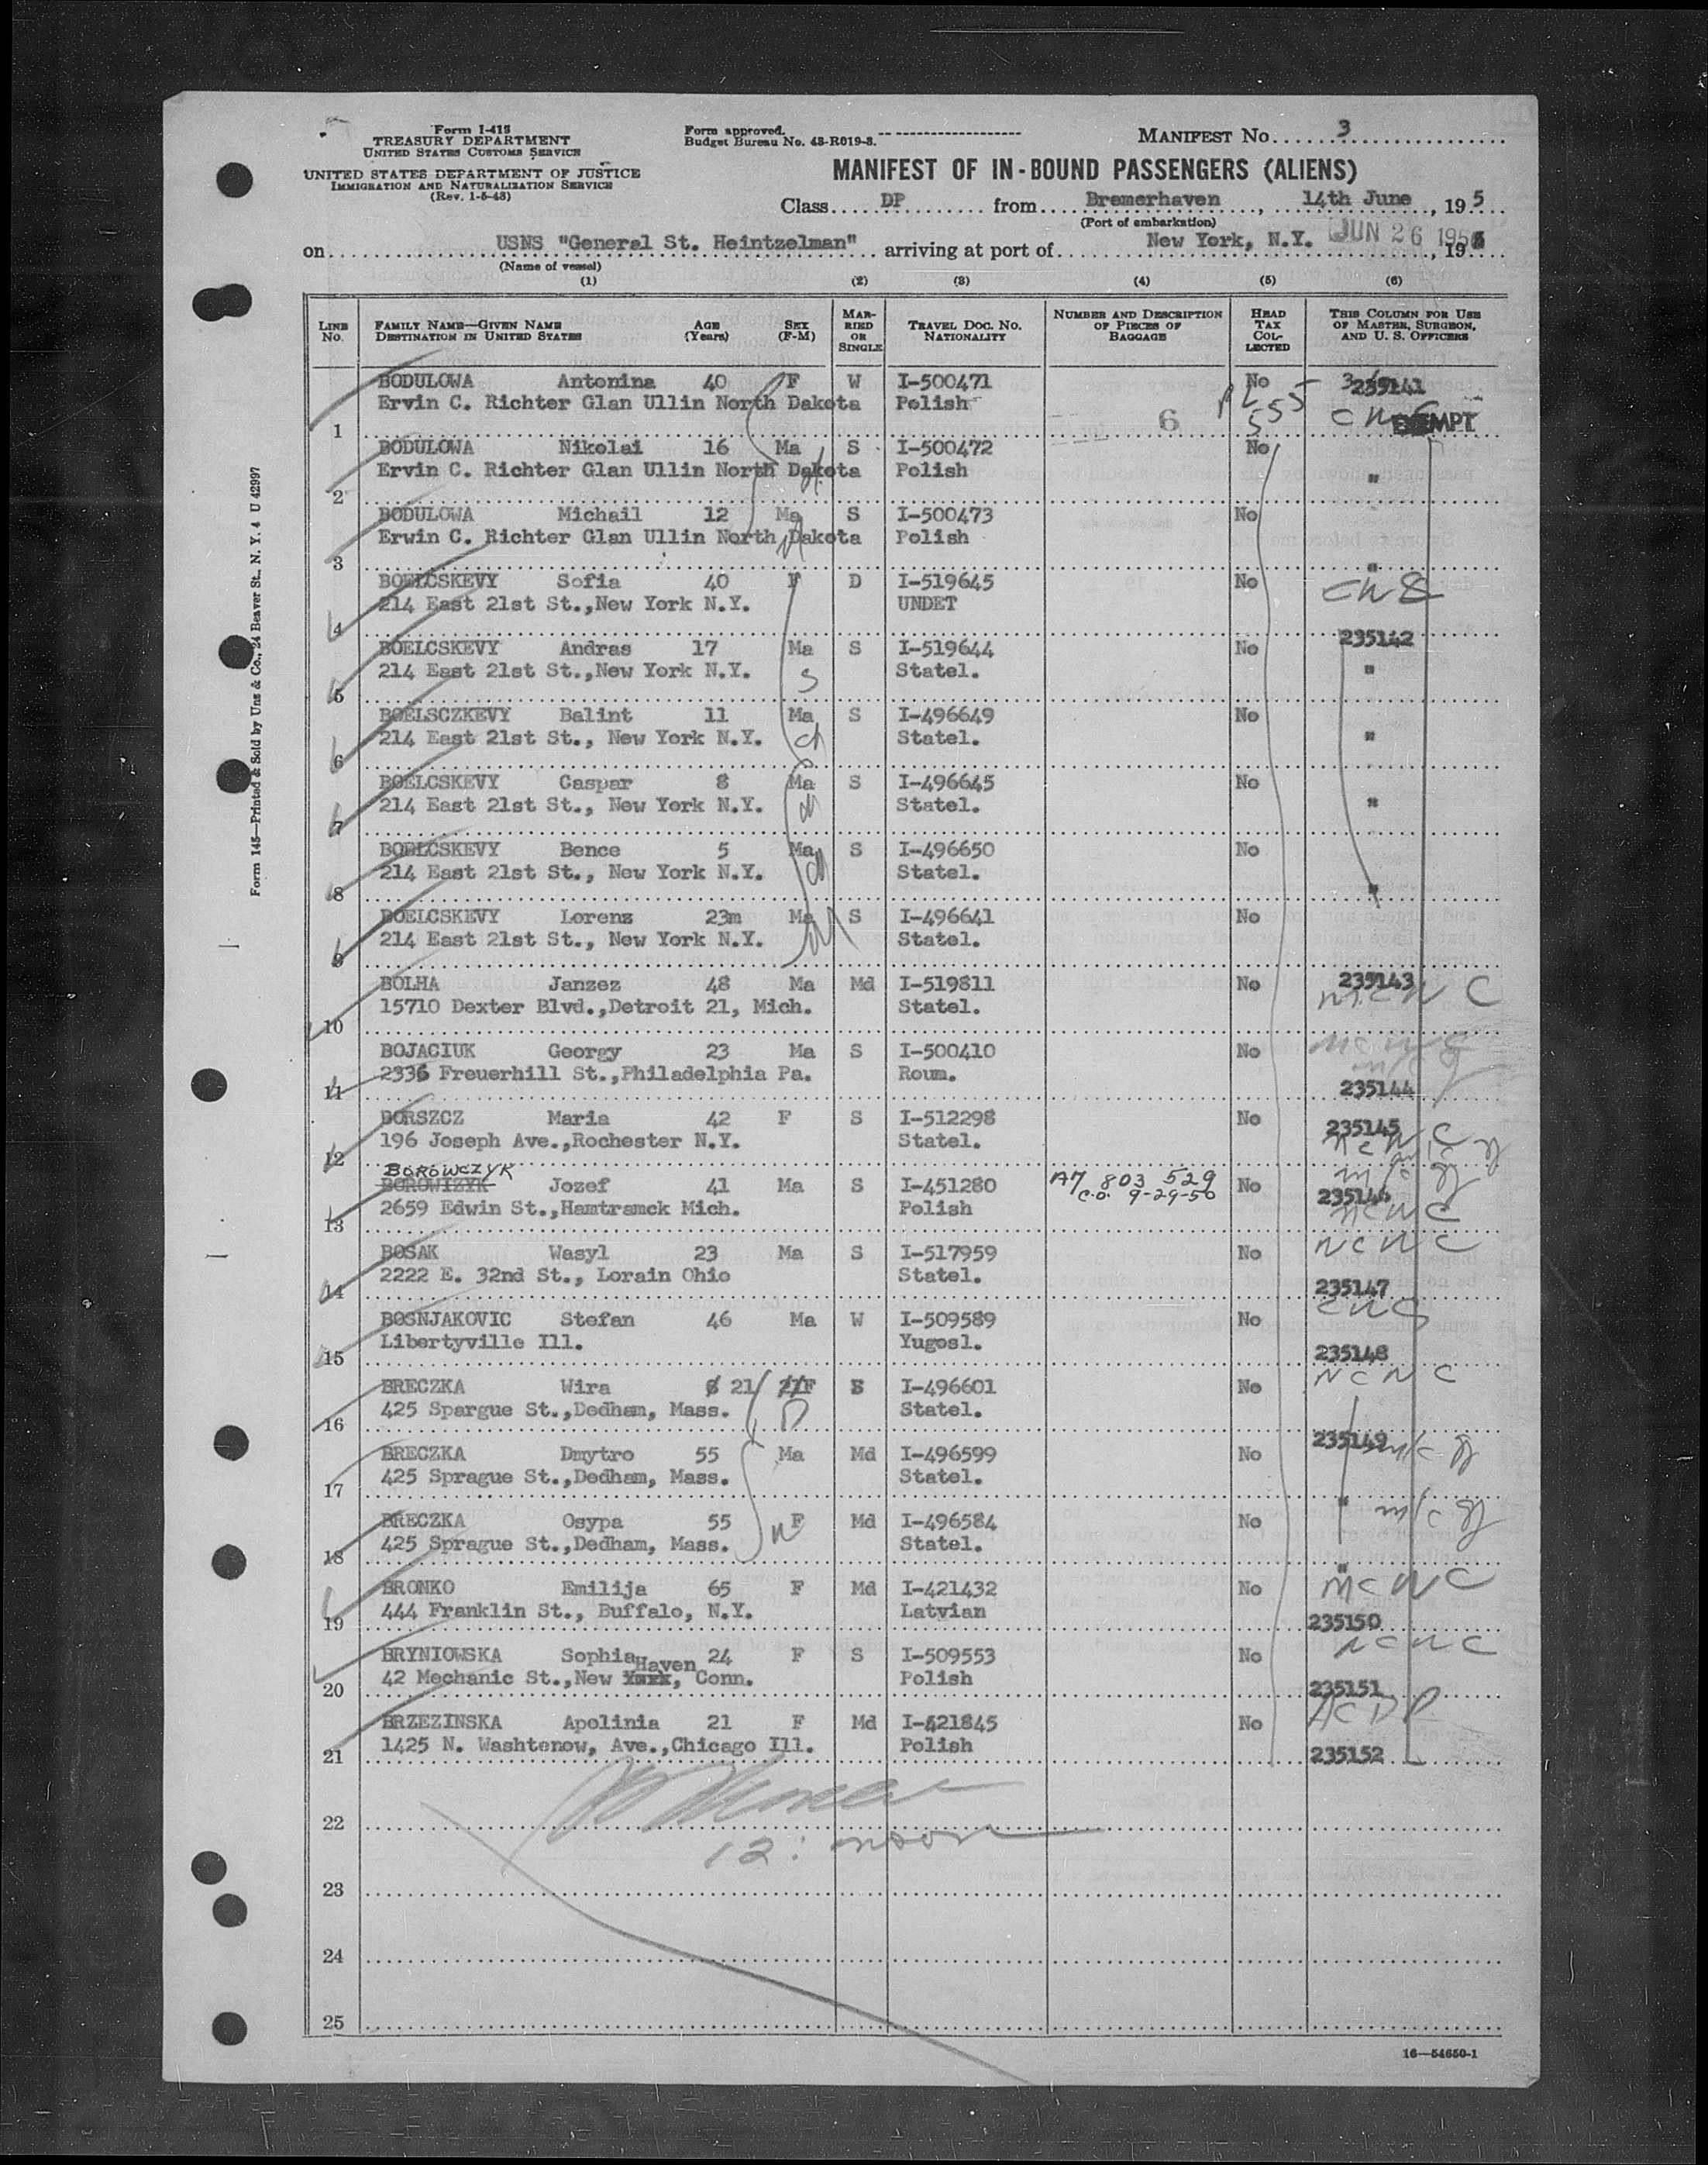 Form I-415
TREASURY DEPARTMENT
UNITED STATES CUSTOMS SERVICE
UNITED STATES DEPARTMENT OF JUSTICE
IMMIGRATION AND NATURALIZATION SERVICE
(Rev. 1-5-48)
Form approved.
Budget Bureau No. 43-R019-3.
MANIFEST No. 3
MANIFEST OF IN-BOUND PASSENGERS (ALIENS)
Class DP from Bremerhaven, 14th June, 195
(Port of embarkation)
on USNS "General St. Heintzelman" arriving at port of New York, N.Y. JUN 26 195 , 19
(Name of vessel)
(1) (2) (3) (4) (5) (6)
LINE No. FAMILY NAME—GIVEN NAME DESTINATION IN UNITED STATES AGE (Years) SEX (F-M) MARRIED OR SINGLE TRAVEL DOC. NO. NATIONALITY NUMBER AND DESCRIPTION OF PIECES OF BAGGAGE HEAD TAX COLLECTED THIS COLUMN FOR USE OF MASTER, SURGEON, AND U. S. OFFICERS
BODULOWA Antonina 40 F W I-500471 No 235141
1 Ervin C. Richter Glan Ullin North Dakota Polish 6 PL 555
BODULOWA Nikolai 16 Ma S I-500472 No
2 Ervin C. Richter Glan Ullin North Dakota Polish "
BODULOWA Michail 12 Ma S I-500473 No
3 Erwin C. Richter Glan Ullin North Dakota Polish "
BOELCSKEVY Sofia 40 F D I-519645 No
4 214 East 21st St.,New York N.Y. UNDET
235142
BOELCSKEVY Andras 17 Ma S I-519644 No
5 214 East 21st St.,New York N.Y. S Statel. "
BOELSCZKEVY Balint 11 Ma S I-496649 No
6 214 East 21st St., New York N.Y. ch Statel. "
BOELCSKEVY Caspar 8 Ma S I-496645 No
7 214 East 21st St., New York N.Y. Statel. "
BOELCSKEVY Bence 5 Ma S I-496650 No
8 214 East 21st St., New York N.Y. Statel. "
BOELCSKEVY Lorenz 23m Ma S I-496641 No
9 214 East 21st St., New York N.Y. Statel.
BOLHA Janzez 48 Ma Md I-519811 No 235143
10 15710 Dexter Blvd.,Detroit 21, Mich. Statel. MCNC
BOJACIUK Georgy 23 Ma S I-500410 No
11 2336 Freuerhill St.,Philadelphia Pa. Roum. 235144
BORSZCZ Maria 42 F S I-512298 No 235145
12 196 Joseph Ave.,Rochester N.Y. Statel. NCNC
BOROWCZYK
BOROWIZYK Jozef 41 Ma S I-451280 A7 803 529 No 235146
13 2659 Edwin St.,Hamtramck Mich. Polish C.O. 9-29-50 NCNC
BOSAK Wasyl 23 Ma S I-517959 No NCNC
14 2222 E. 32nd St., Lorain Ohio Statel. 235147
BOSNJAKOVIC Stefan 46 Ma W I-509589 No
15 Libertyville Ill. Yugosl. 235148
BRECZKA Wira 21 F S I-496601 No NCNC
16 425 Spargue St.,Dedham, Mass. D Statel.
235149
BRECZKA Dmytro 55 Ma Md I-496599 No
17 425 Sprague St.,Dedham, Mass. Statel. "
BRECZKA Osypa 55 F Md I-496584 No
18 425 Sprague St.,Dedham, Mass. Statel. "
BRONKO Emilija 65 F Md I-421432 No MCNC
19 444 Franklin St., Buffalo, N.Y. Latvian 235150
BRYNIOWSKA Sophia 24 F S I-509553 No NCNC
Haven
20 42 Mechanic St.,New York, Conn. Polish 235151
BRZEZINSKA Apolinia 21 F Md I-421845 No
21 1425 N. Washtenow, Ave.,Chicago Ill. Polish 235152
22
12: noon
23
24
25
16—54650-1
Form 145—Printed & Sold by Unz & Co., 24 Beaver St., N. Y. 4 U 42997